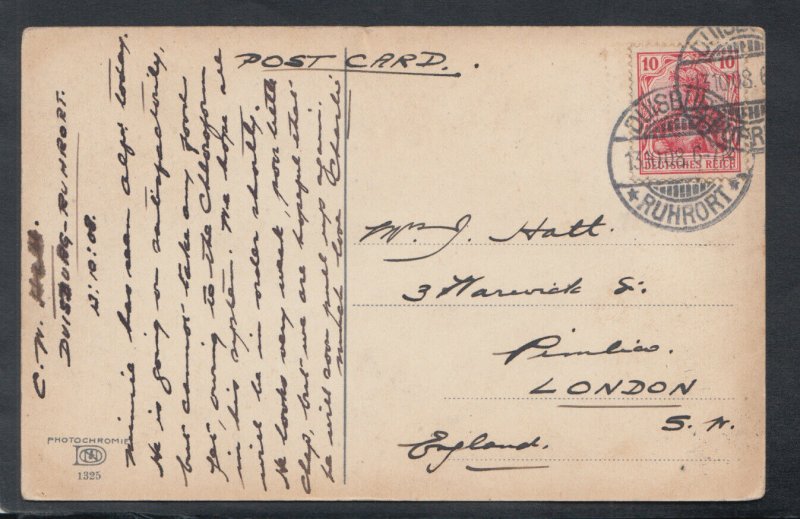 POST CARD.
C. N. Hatt.
DUISBURG-RUHRORT.
13:10:08.
Minnie has seen Alf today.
He is going on satisfactorily,
but cannot take any food
yet, owing to the Chloroform
in his system. We hope all
will be in order shortly.
He looks very weak, poor little
chap, but we are hopeful that
he will soon pull up again.
Much love Charlie
PHOTOCHROMIE
1325
10 10
DEUTSCHES REICH
DUISBURG
13.10.08.6-7
* RUHRORT *
Mrs J. Hatt
3 Warwick St.
Pimlico.
LONDON
S. W.
England.